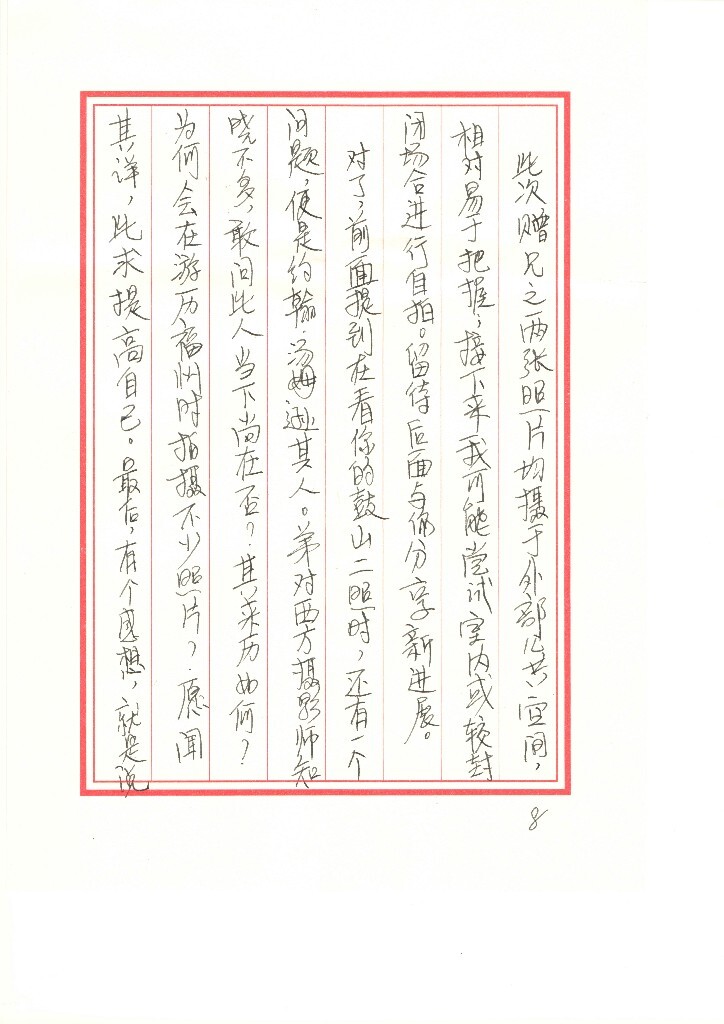 此次赠兄之两张照片均摄于外部公共空间，
相对易于把握；接下来我可能尝试室内或较封
闭场合进行自拍。留待后面与你分享新进展。
对了，前面提到在看你的鼓山二照时，还有一个
问题，便是约翰·汤姆逊其人。弟对西方摄影师知
晓不多，敢问此人当下尚在否？其来历如何？
为何会在游历福州时拍摄不少照片？愿闻
其详，此求提高自己。最后，有个感想，就是说
8